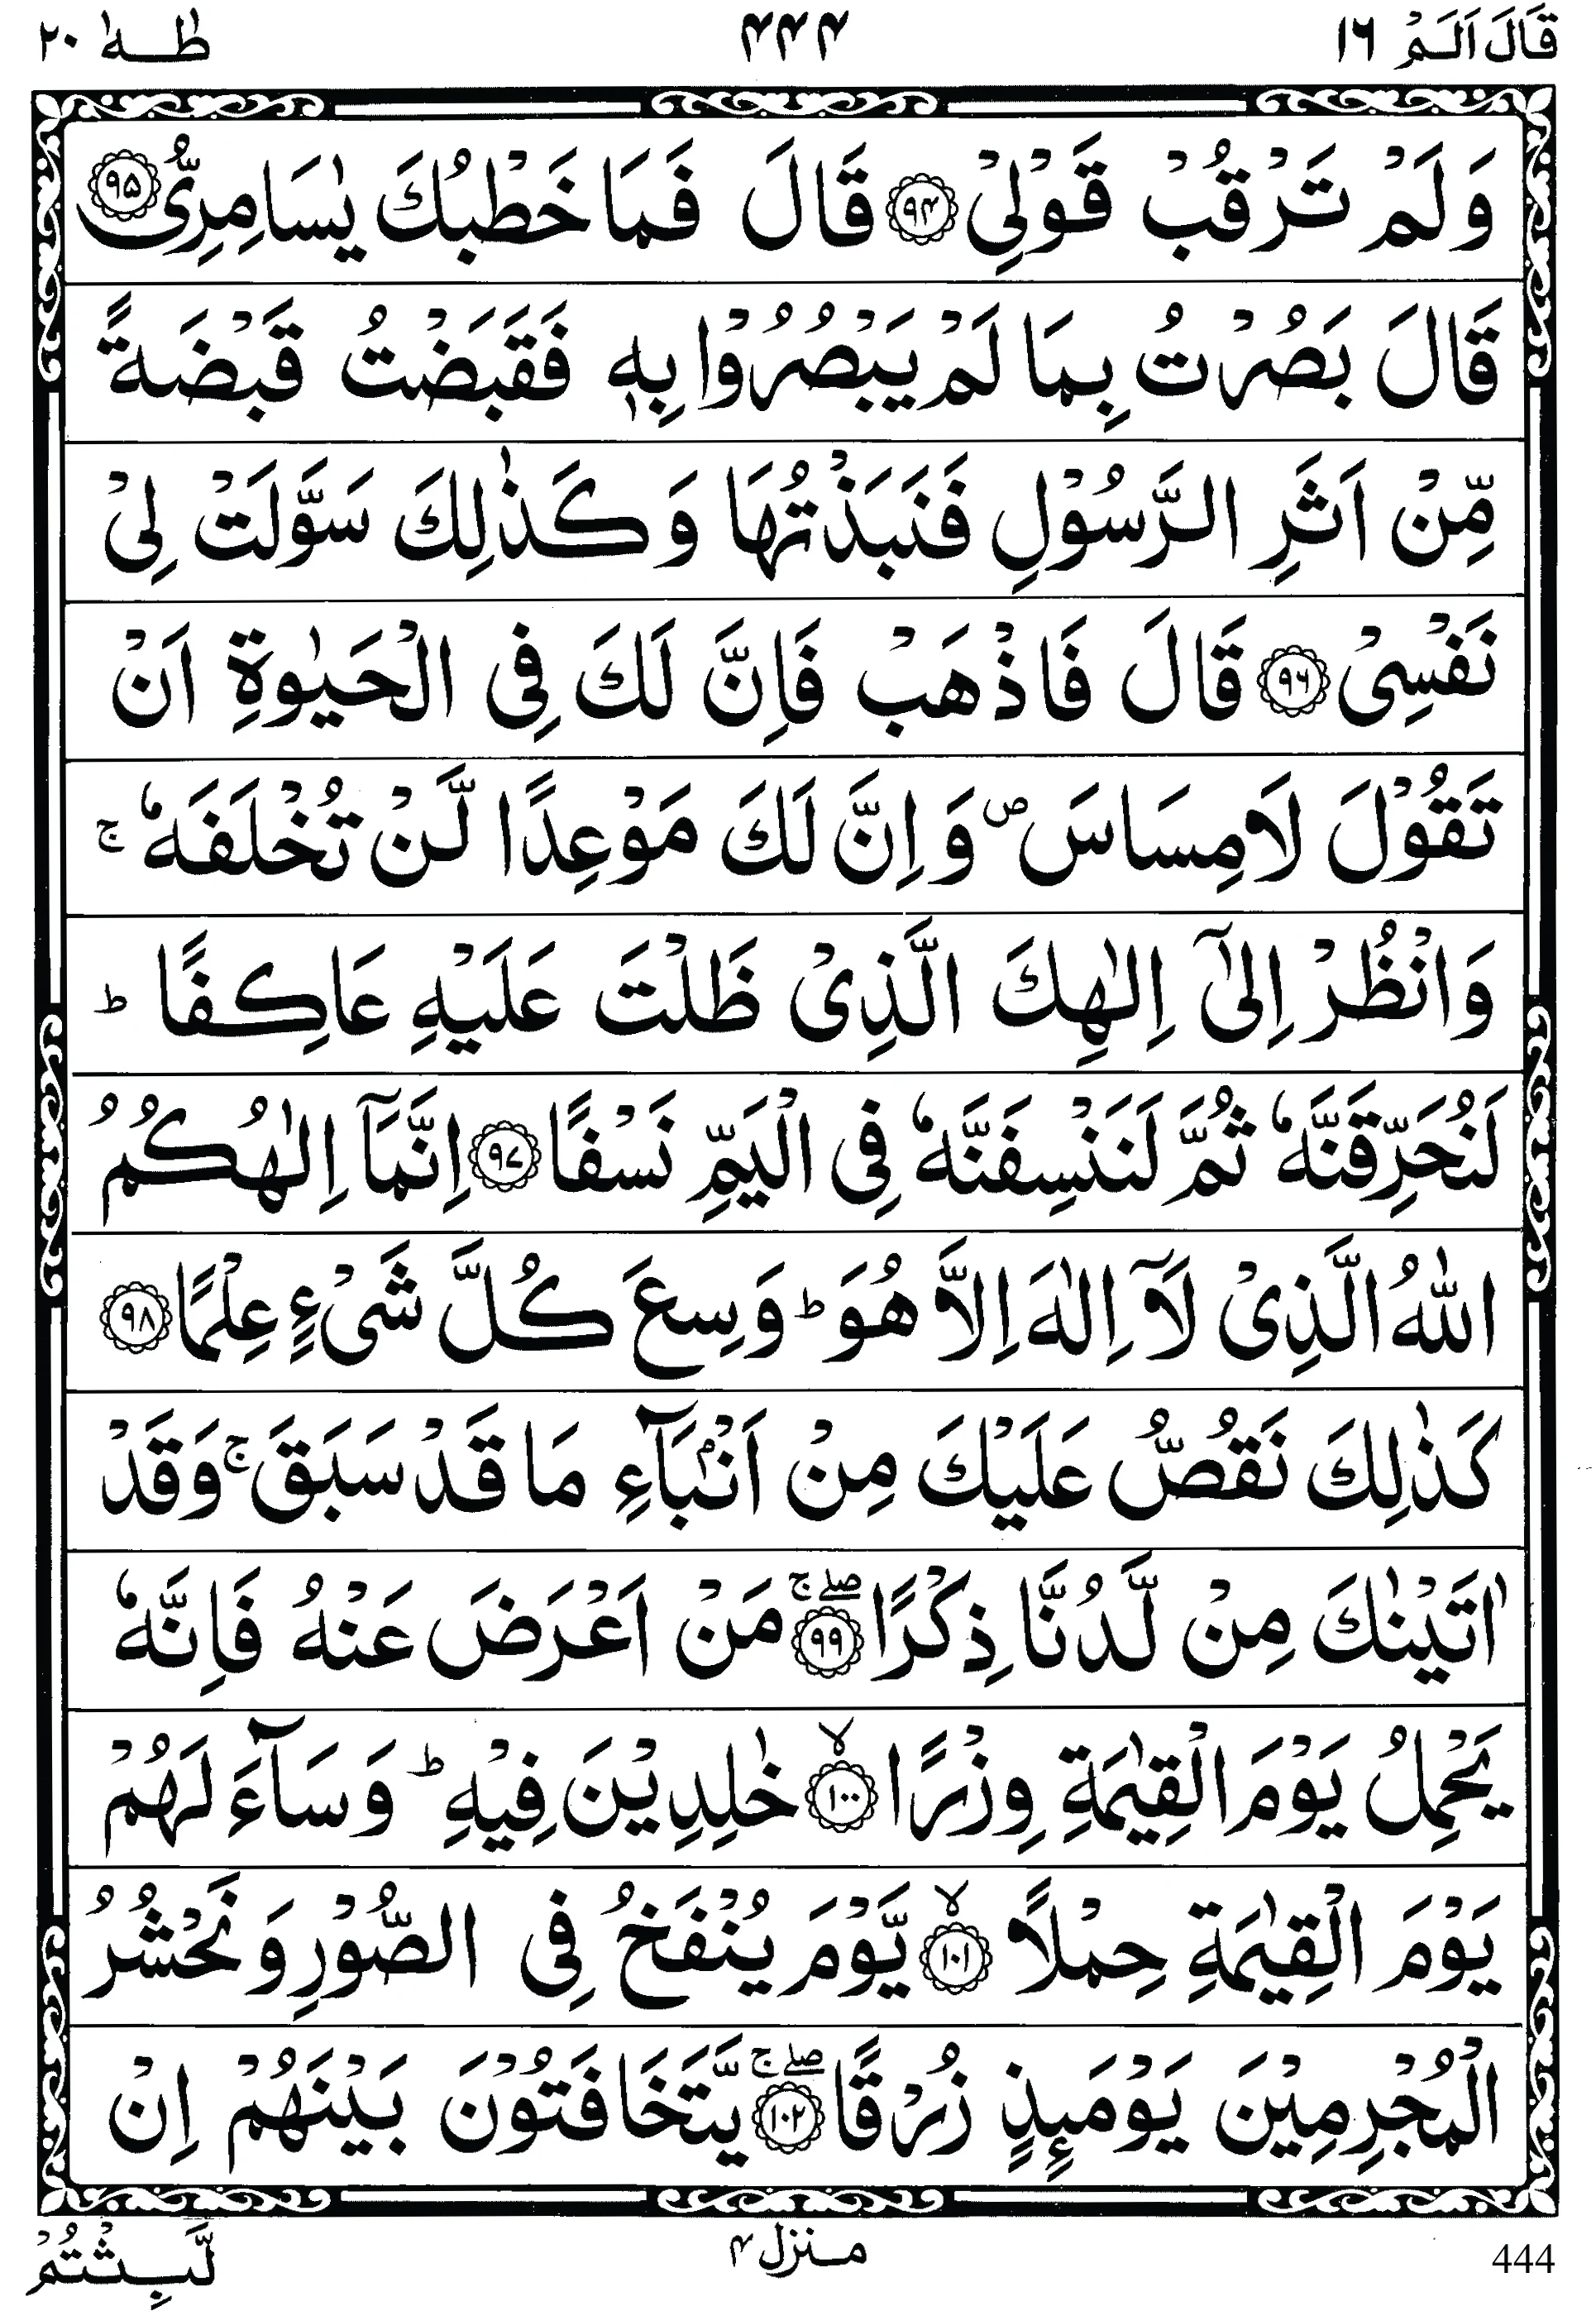 قَالَ اَلَمْ ١٦ ۴۴۴ طٰهٰ ۲۰
وَلَمْ تَرْقُبْ قَوْلِیْ ﴿۹۴﴾ قَالَ فَمَا خَطْبُكَ یٰسَامِرِیُّ ﴿۹۵﴾
قَالَ بَصُرْتُ بِمَا لَمْ یَبْصُرُوْا بِهٖ فَقَبَضْتُ قَبْضَةً
مِّنْ اَثَرِ الرَّسُوْلِ فَنَبَذْتُهَا وَكَذٰلِكَ سَوَّلَتْ لِیْ
نَفْسِیْ ﴿۹۶﴾ قَالَ فَاذْهَبْ فَاِنَّ لَكَ فِی الْحَیٰوةِ اَنْ
تَقُوْلَ لَا مِسَاسَ ۪ وَاِنَّ لَكَ مَوْعِدًا لَّنْ تُخْلَفَهٗ ۚ
وَانْظُرْ اِلٰۤی اِلٰهِكَ الَّذِیْ ظَلْتَ عَلَیْهِ عَاكِفًا ؕ
لَنُحَرِّقَنَّهٗ ثُمَّ لَنَنْسِفَنَّهٗ فِی الْیَمِّ نَسْفًا ﴿۹۷﴾ اِنَّمَاۤ اِلٰهُكُمُ
اللّٰهُ الَّذِیْ لَاۤ اِلٰهَ اِلَّا هُوَ ؕ وَسِعَ كُلَّ شَیْءٍ عِلْمًا ﴿۹۸﴾
كَذٰلِكَ نَقُصُّ عَلَیْكَ مِنْ اَنْۢبَآءِ مَا قَدْ سَبَقَ ۚ وَقَدْ
اٰتَیْنٰكَ مِنْ لَّدُنَّا ذِكْرًا ﴿۹۹﴾ صلے ج مَنْ اَعْرَضَ عَنْهُ فَاِنَّهٗ
یَحْمِلُ یَوْمَ الْقِیٰمَةِ وِزْرًا ﴿۱۰۰﴾ۙ خٰلِدِیْنَ فِیْهِ ؕ وَسَآءَ لَهُمْ
یَوْمَ الْقِیٰمَةِ حِمْلًا ﴿۱۰۱﴾ۙ یَّوْمَ یُنْفَخُ فِی الصُّوْرِ وَنَحْشُرُ
الْمُجْرِمِیْنَ یَوْمَىِٕذٍ زُرْقًا ﴿۱۰۲﴾ صلے ج یَّتَخَافَتُوْنَ بَیْنَهُمْ اِنْ
444 منزل ۴ لَّبِثْتُمْ